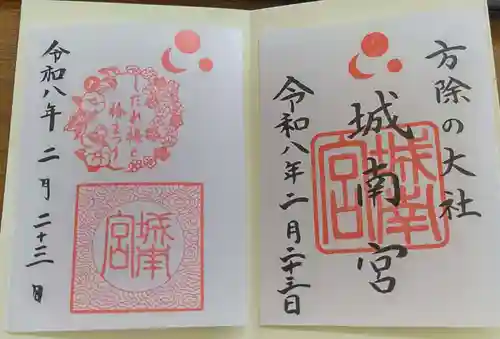 方除の大社
城南宮
城南宮
令和八年二月二十三日
しだれ梅と
椿まつり
城南宮
令和八年二月二十三日